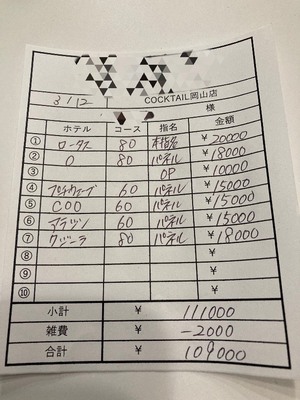 3/12
COCKTAIL岡山店
様
ホテル コース 指名 金額
① ロータス 80 本指名 ¥20000
② O 80 パネル ¥18000
③ OP ¥10000
④ 60 パネル ¥15000
⑤ COO 60 パネル ¥15000
⑥ アラジン 60 パネル ¥15000
⑦ クジーラ 80 パネル ¥18000
⑧ ¥
⑨ ¥
⑩ ¥
小計 ¥ 111000
雑費 ¥ -2000
合計 ¥ 109000